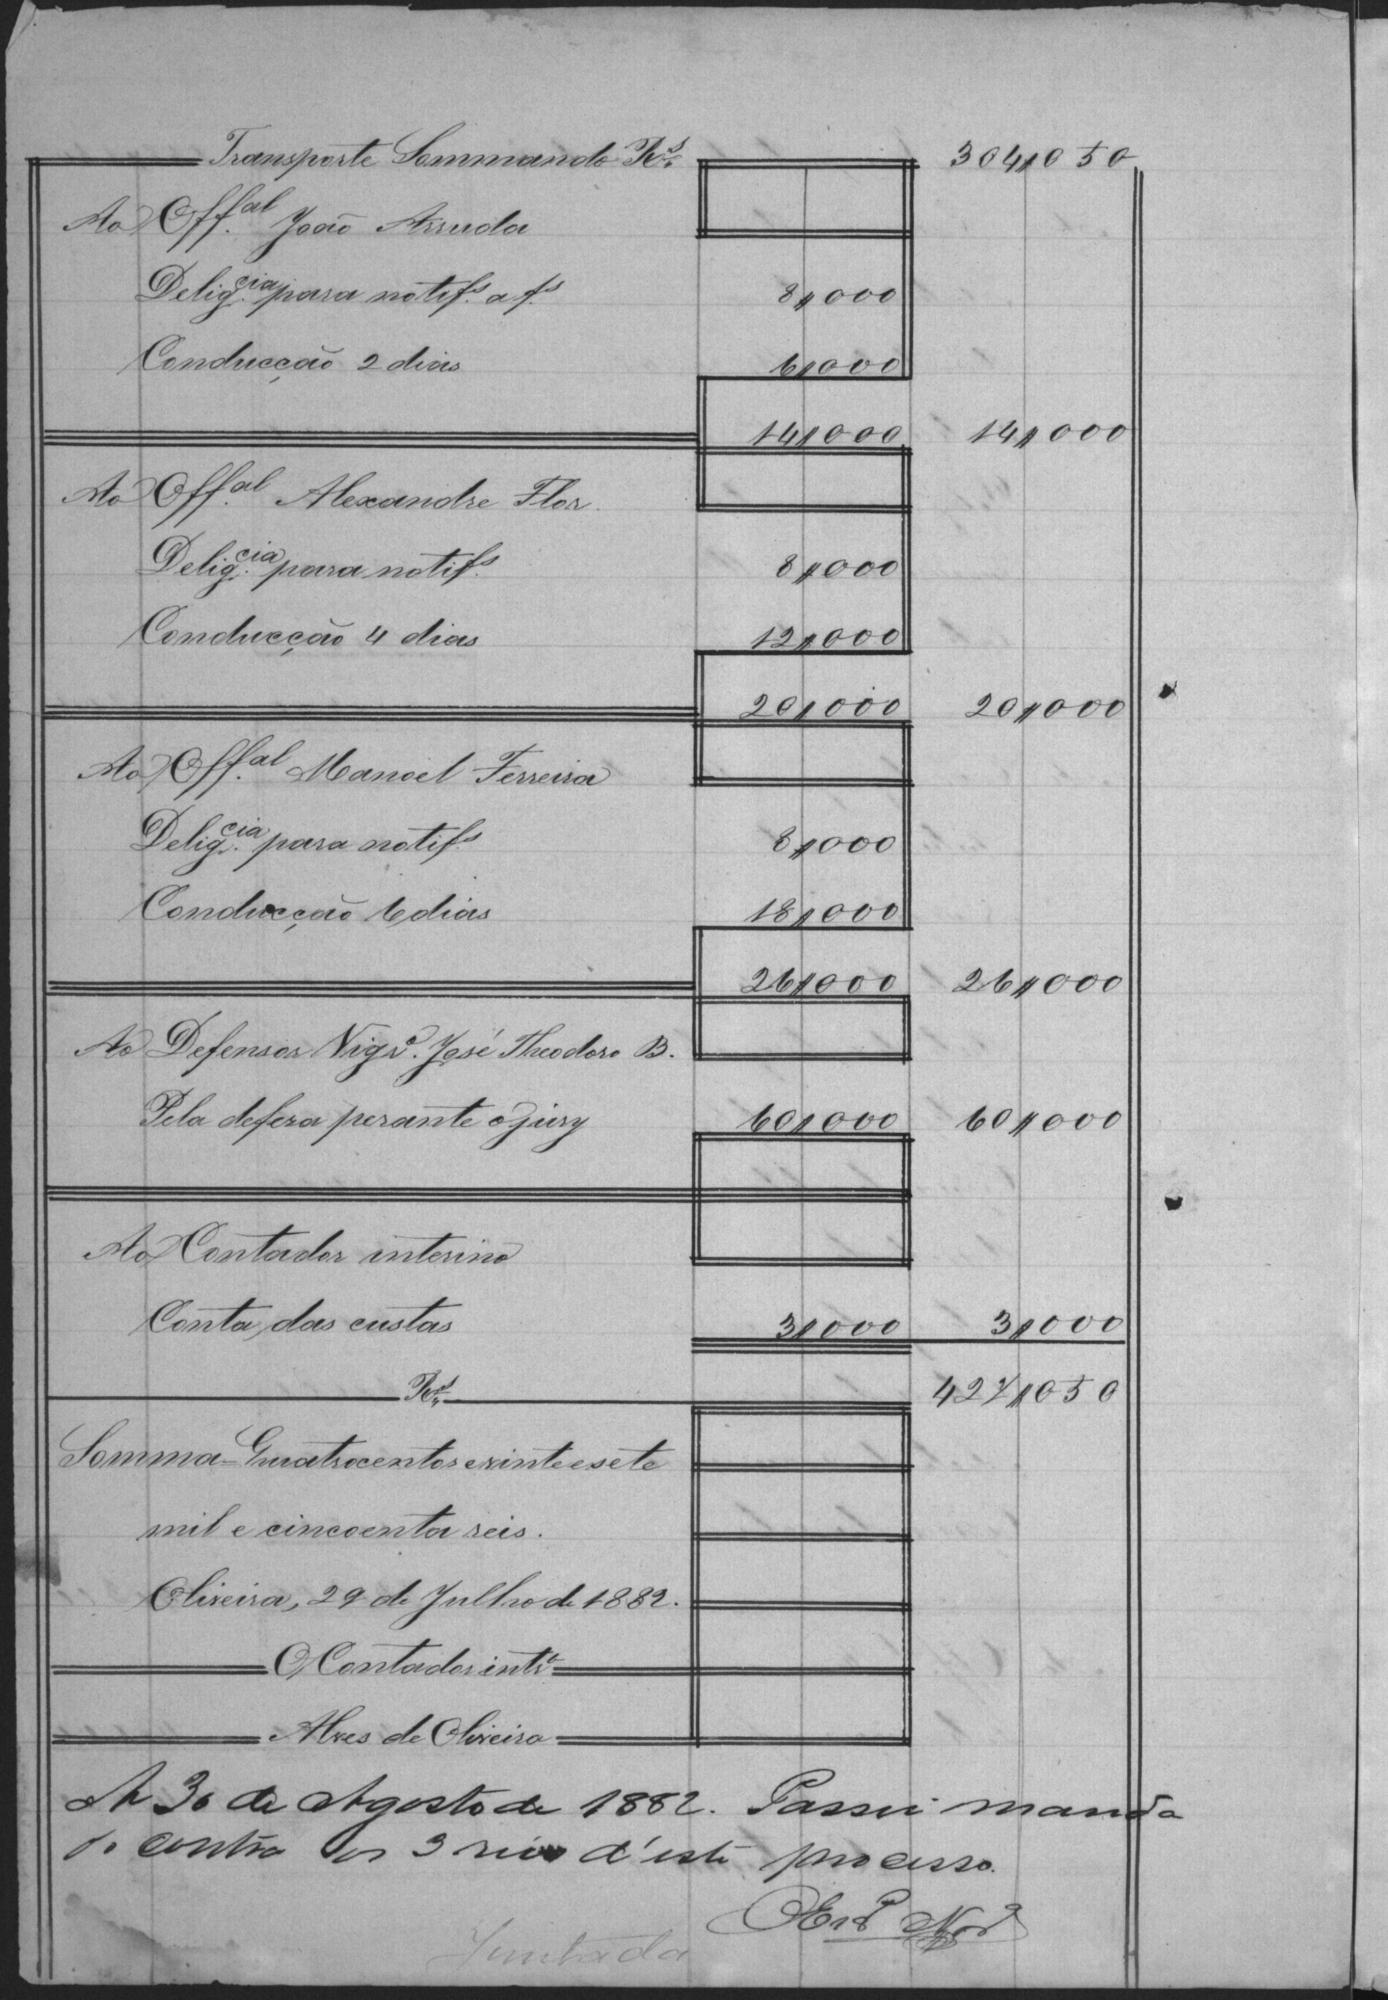 Transporte Sommando R.s 304,,050
Ao Off.al João Arruda
Delig.cia para notif.s a f.s 8,,000
Conducção 2 dias 6,,000
14,,000 14,,000
Ao Off.al Alexandre Flor.
Delig.cia para notif.s 8,,000
Conducção 4 dias 12,,000
20,,000 20,,000
Ao Off.al Manoel Ferreira
Delig.cia para notif.s 8,,000
Conducção 6 dias 18,,000
26,,000 26,,000
Ao Defensor Vigr.o José Theodoro B.
Pela defeza perante o jury 60,,000 60,,000
Ao Contador interino
Conta das custas 3,,000 3,,000
R.s 427,,050
Somma = Quatrocentos e vinte e sete
mil e cincoenta reis.
Oliveira, 29 de Julho de 1882.
O Contador int.o
Alves de Oliveira
A 30 de Agosto de 1882. Passei manda
do contra os 3 réos d'este processo.
O Esc.
Juntada